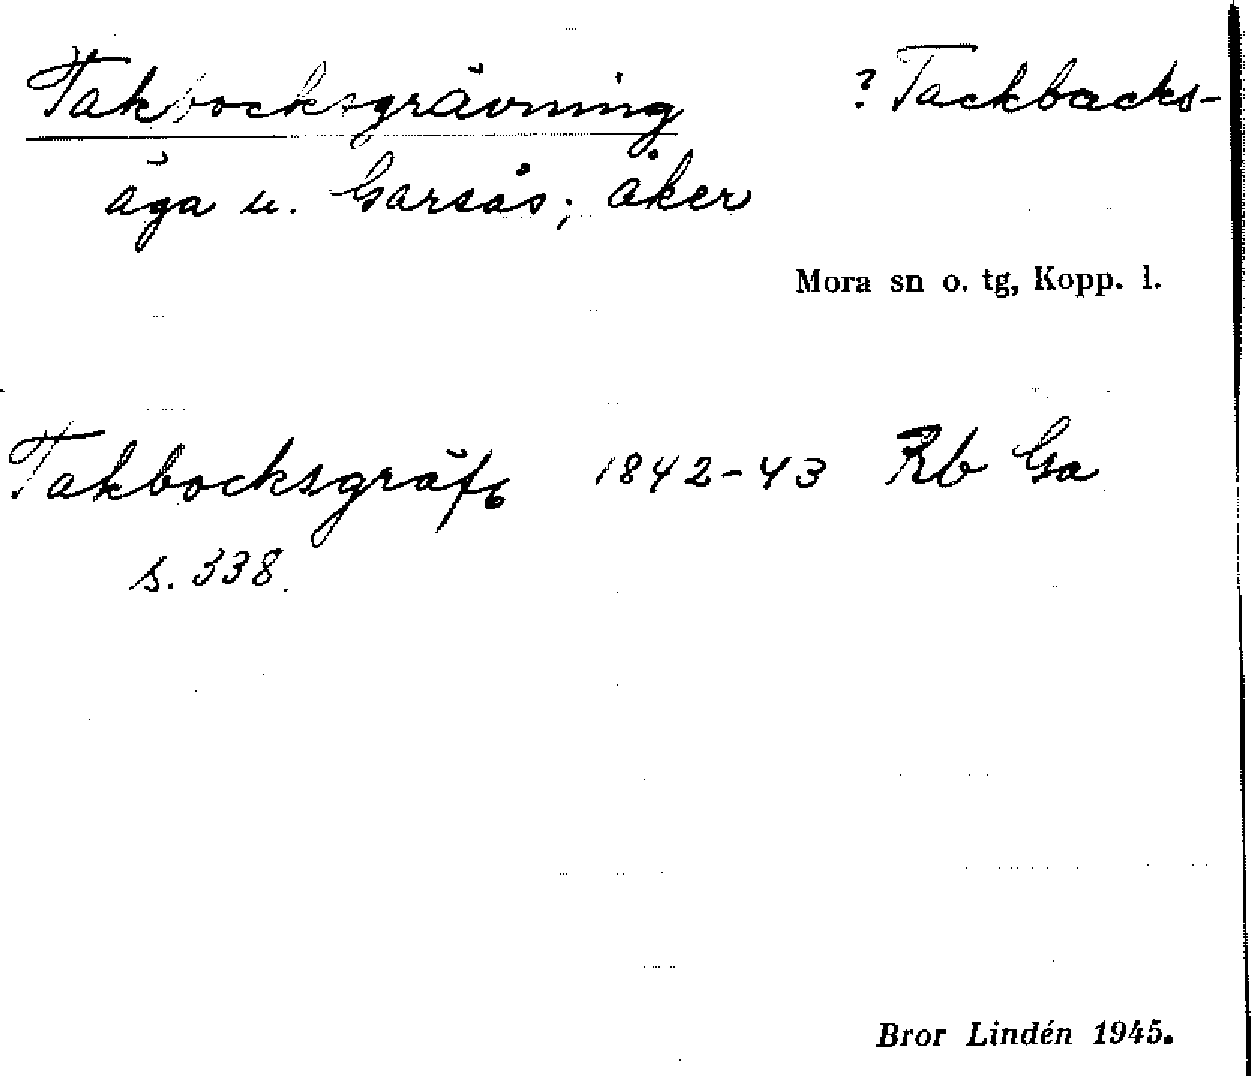 Takbocksgrävning ? Tackbacks-
äga u. Garsås; åker
Mora sn o. tg, Kopp. l.
Takbocksgräfg 1842-43 Rb Ga
s. 338.
Bror Lindén 1945.